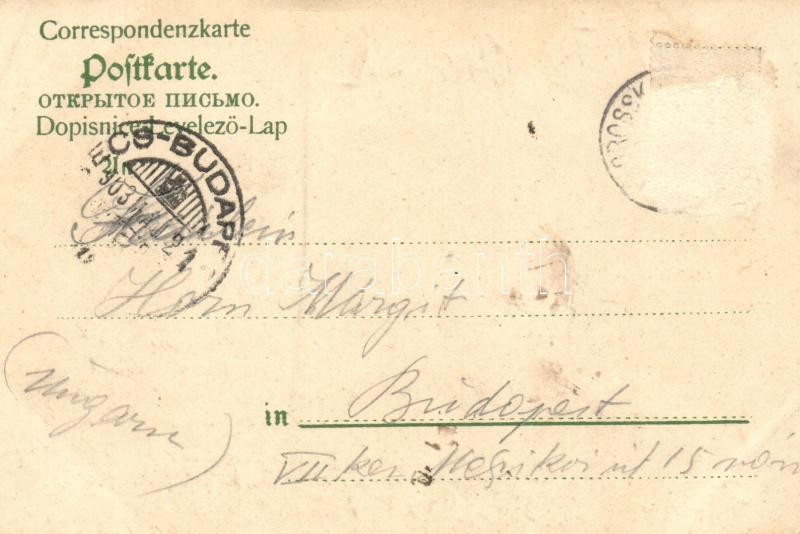 Correspondenzkarte
Postkarte.
ОТКРЫТОЕ ПИСЬМО.
Dopisnice-Levelezö-Lap
CS-BUDAPE
903
21
GROSSK
An
Fräulein
Horn Margit
(Ungarn)
in Budapest
VII ker. 15
darabanth